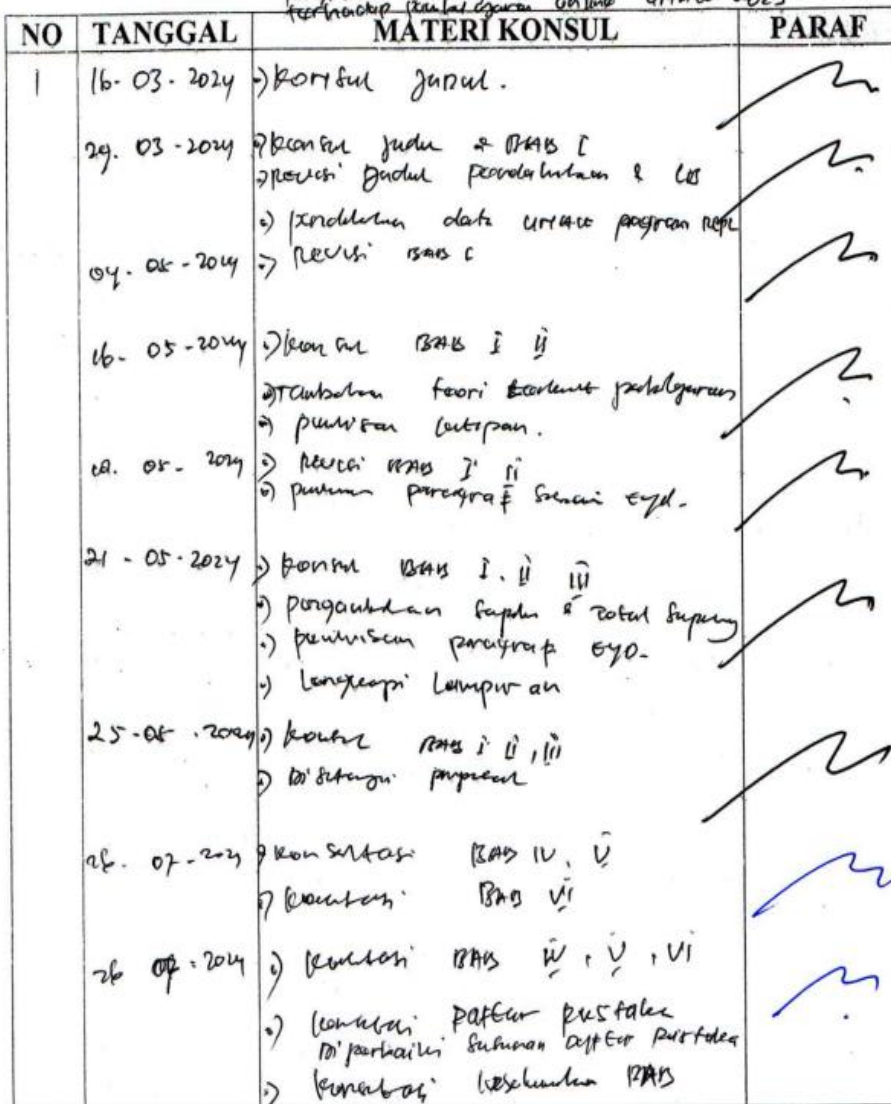 terhadap pembelajaran online 2023
NO TANGGAL MATERI KONSUL PARAF
1 16-03-2024 Konsul Judul.
29.03-2024 Konsul Judul & BAB I
Revisi Judul Pendahuluan &
data program
04-05-2024 Revisi BAB I
16-05-2024 Konsul BAB I II
Tambahan teori pembelajaran
penulisan kutipan.
05-2024 Revisi BAB I II
paragraf sesuai EYD.
21-05-2024 Konsul BAB I. II III
Pengambilan & Total Sampling
penulisan paragrap EYD.
Lengkapi Lampiran
25-05-2024 Konsul BAB I II, III
Disetujui proposal
07-2024 Konsultasi BAB IV, V
Konsultasi BAB VI
26 2024 Konsultasi BAB IV, V, VI
Konsultasi Daftar Pustaka
Diperbaiki Susunan Daftar Pustaka
Konsultasi keseluruhan BAB